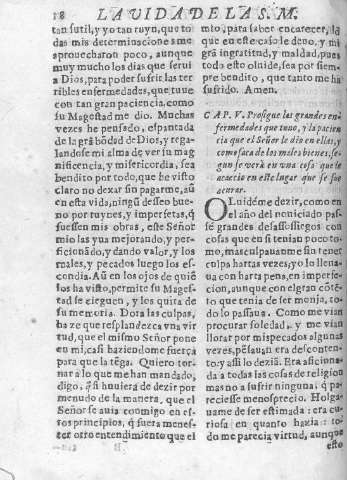 18 LA VIDA DE LA S. M.
tan sutil, y yo tan ruyn, que to
das mis determinaciones me
aprouecharon poco, aunque
muy mucho los dias que serui
a Dios, para poder sufrir las ter
ribles enfermedades, que tuue
con tan gran paciencia, como
su Magestad me dio. Muchas
vezes he pensado, espantada
de la grã bõdad de Dios, y rega
landose mi alma de ver su mag
nificencia, y misericordia, sea
bendito por todo, que he visto
claro no dexar sin pagarme, aũ
en esta vida, ningũ desseo bue-
no por ruynes, y imperfetas, q̃
fuessen mis obras, este Señor
mio las yua mejorando, y per-
ficionãdo, y dando valor, y los
males, y pecados luego los es-
condia. Aũ en los ojos de quiẽ
los ha visto, permite su Mages-
tad se cieguen, y los quita de
su memoria. Dora las culpas,
haze que resplandezca vna vir
tud, que el mismo Señor pone
en mi, casi haziendome fuerça
para que la tẽga. Quiero tor-
nar a lo que me han mandado,
digo, q̃ si huuiera de dezir por
menudo de la manera, que el
Señor se auia conmigo en es-
tos principios, q̃ fuera menes-
ter otro entendimiento que el
mio, para saber encarecer, lo
que en este caso le deuo, y mi
grã ingratitud, y maldad, pues
todo esto oluide, sea por siem-
pre bendito, que tanto me ha
sufrido. Amen.
CAP. V. Prosigue las grandes en-
fermedades que tuuo, y la pacien
cia que el Señor le dio en ellas, y
como saca de los males bienes, se-
gun se verà en una cosa que le
acaecio en este lugar que se fue
a curar.
OLuidéme dezir, como en
el año del nouiciado pas-
sè grandes desassossiegos con
cosas que en si tenian poco to-
mo, mas culpauanme sin tener
culpa hartas vezes, yo lo lleua-
ua con harta pena, en imperfe-
cion, aunque con el gran cõtẽ-
to que tenia de ser monja, to-
do lo passaua. Como me vian
procurar soledad, y me vian
llorar por mis pecados algunas
vezes, pẽsauan era desconten-
to, y assi lo deziã. Era aficiona-
da a todas las cosas de religion
mas no a sufrir ninguna, q̃ pa-
reciesse menosprecio. Holga-
uame de ser estimada: era cu-
riosa en quanto hazia: to-
do me parecia virtud, aunque
B
esto